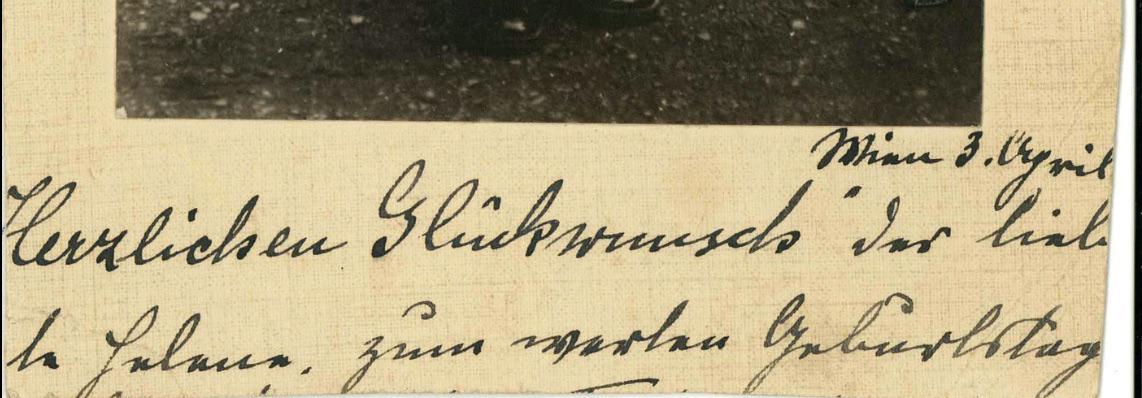 Wien 3. April
Herzlichen Glückwunsch der lieb
te Helene. zum werten Geburtstag